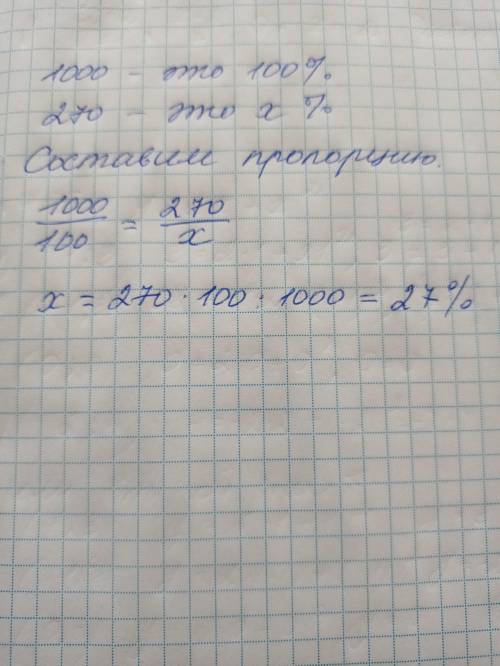 1000 - это 100%.
270 - это x %
Составим пропорцию.
1000/100 = 270/x
x = 270 · 100 : 1000 = 27%